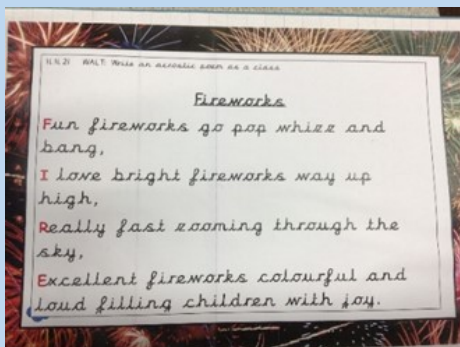 11.11.21 WALT: Write an acrostic poem as a class
Fireworks
Fun fireworks go pop whizz and
bang,
I love bright fireworks way up
high,
Really fast zooming through the
sky,
Excellent fireworks colourful and
loud filling children with joy.